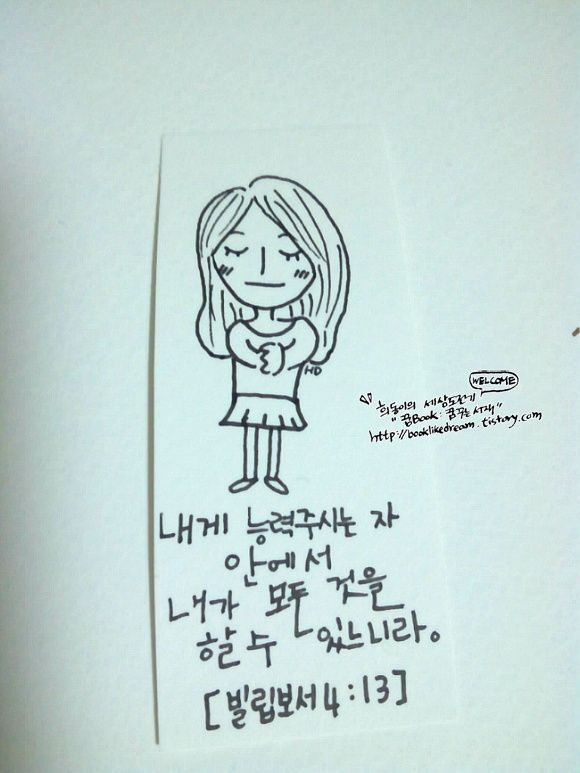 HD
WELCOME
희동이의 세상도전기
"꿈Book: 꿈꾸는 서재"
http://booklikedream.tistory.com
내게 능력주시는 자
안에서
내가 모든 것을
할 수 있느니라。
[빌립보서 4:13]